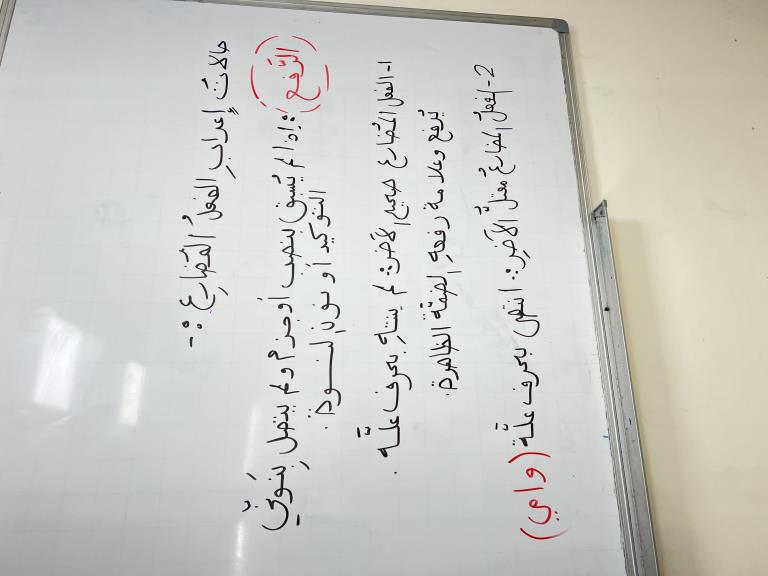 حالاتُ إعرابِ الفعلُ المُضارِعِ :-
(الرَّفع) : إذا لم يُسبق بنصب أو جزم ولم يتصل بِنَونَيّ
التوكيد أو نون النسوة.
1- الفعل المُضارع صحيح الآخر: لم ينتهِ بحرف علّه.
يُرفع وعلامة رفعهِ الضمّة الظاهرة.
2- الفعلُ المضارعُ مُعتلُّ الآخرِ: انتهى بحرف علّة (و ا ي)